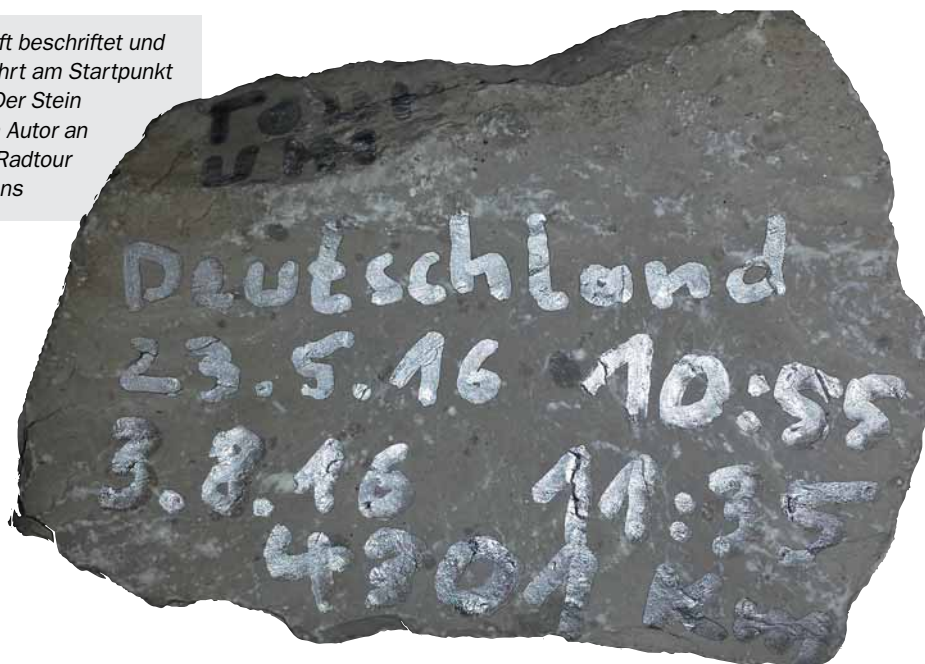 ft beschriftet und
hrt am Startpunkt
Der Stein
Autor an
Radtour
ns
Tour
um
Deutschland
23.5.16 10:55
3.8.16 11:35
4301 Km